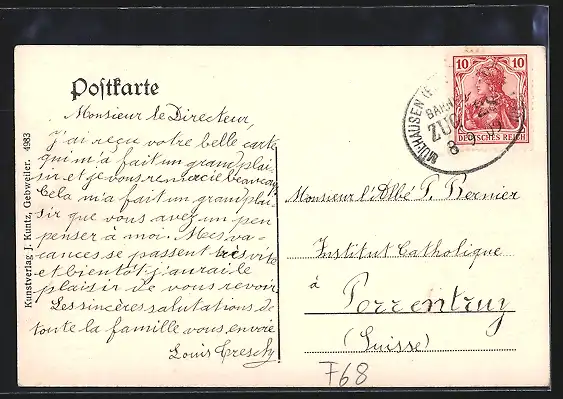 Postkarte
Monsieur le Directeur,
J'ai reçu votre belle carte
qui m'a fait un grand plai-
sir et je vous remercie beaucoup
Cela m'a fait un grand plai-
sir que vous avez un peu
penser à moi. Mes va-
cances se passent très vite
et bientôt j'aurai le
plaisir de vous revoir
Les sincères salutations de
toute la famille vous envoie
Louis
Kunstverlag J. Kuntz, Gebweiler. 4983
10 10
DEUTSCHES REICH
MÜLHAUSEN
BAHN
ZUG
8 9
Monsieur l'Abbé P. Bernier
Institut Catholique
à
Porrentruy
(Suisse)
F68